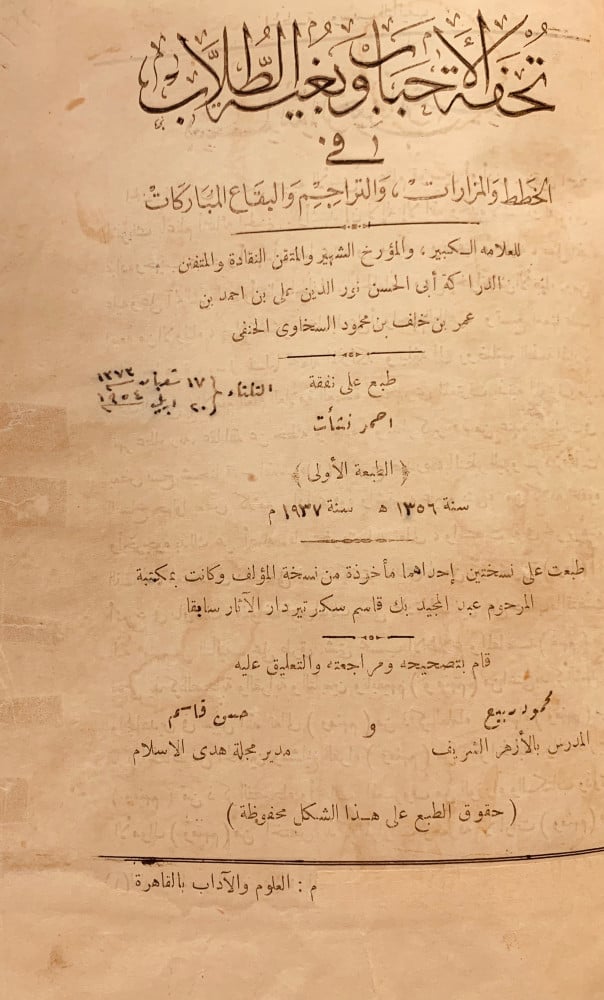 تحفة الأحباب وبغية الطلاب
في
الخطط والمزارات، والتراجم والبقاع المباركات
للعلامه الكبير، والمؤرخ الشهير والمتقن النقادة والمتفنن
الدراكة أبى الحسن نور الدين على بن احمد بن
عمر بن خلف بن محمود السخاوى الحنفى
طبع على نفقة
احمد نشأت
الثلثاء { ١٧ شعبان ١٣٧٣
٢٠ ابريل ١٩٥٤
﴿ الطبعة الأولى ﴾
سنة ١٣٥٦ هـ - سنة ١٩٣٧ م
طبعت على نسختين إحداهما مأخوذة من نسخة المؤلف وكانت بمكتبة
المرحوم عبد المجيد بك قاسم سكرتير دار الآثار سابقا
قام بتصحيحه ومراجعته والتعليق عليه
محمود ربيع و حسن قاسم
المدرس بالأزهر الشريف مدير مجلة هدى الاسلام
( حقوق الطبع على هذا الشكل محفوظة )
م : العلوم والآداب بالقاهرة